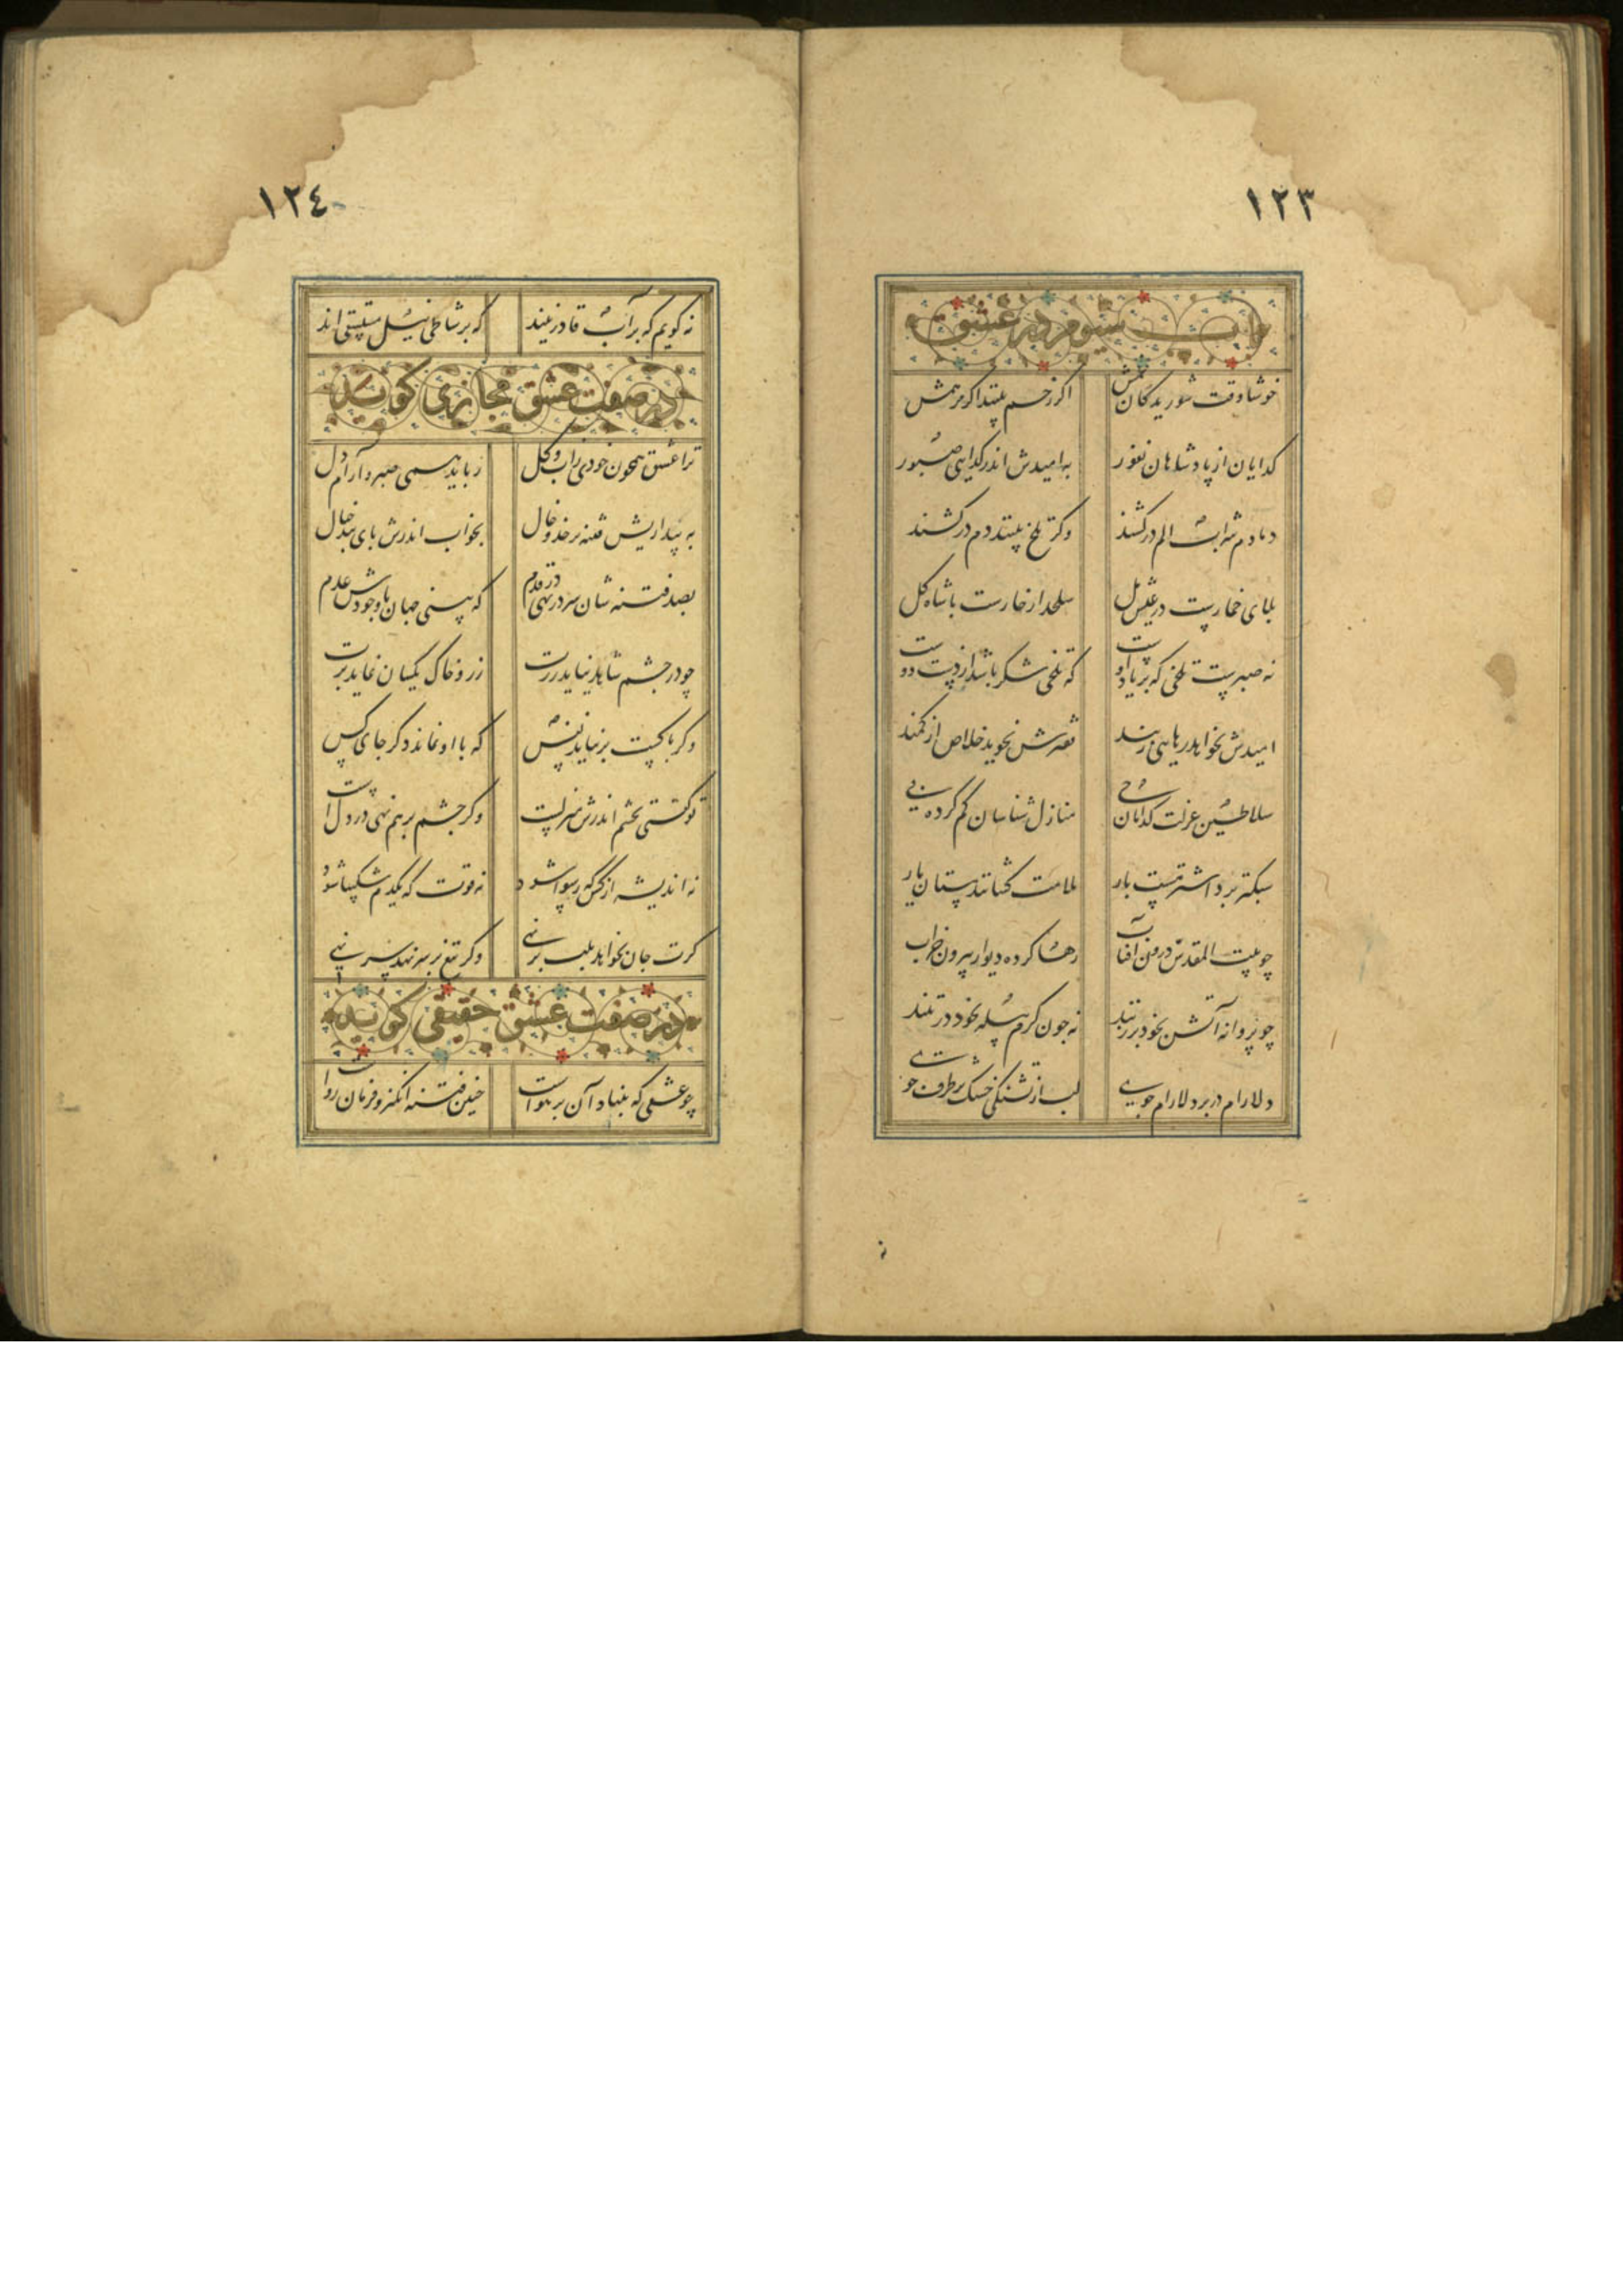 ١٢٣
باب سیوم در عشق
خوشا وقت شوریدگان غمش اگر زخم بینند اگر مرهمش
گدایان از پادشاهان نفور به امیدش اندر گدایی صبور
دمادم شراب الم درکشند وگر تلخ بینند دم درکشند
بلای خمارست در عیش مل سلحدار خارست با شاه گل
نه صبرست تلخی که بر یاد اوست که تلخی شکر باشد از دست دوست
اسیرش نخواهد رهایی ز بند شکارش نجوید خلاص از کمند
سلاطین عزلت گدایان حی منازل شناسان گم کرده پی
سبکتر برد اشتر مست بار ملامت کشانند مستان یار
چو بیت المقدس درون آفتاب رها کرده دیوار بیرون خراب
چو پروانه آتش بخود در زنند نه چون کرم پیله بخود در تنند
دلارام در بر دلارام جوی لب از تشنگی خشک بر طرف جوی
١٢٤
نه گویم که بر آب قادر نیند که بر شاطی نیل مستسقی اند
در صفت عشق مجازی گوید
ترا عشق همچون خودی ز آب و گل رباید همی صبر و آرام دل
به بیداریش فتنه بر خد و خال بخواب اندرش پای بند خیال
بصدق شان سر نهی در قدم که بینی جهان با وجودش عدم
چو در چشم شاهد نیاید زرت زر و خاک یکسان نماید برت
وگر با کست برنیاید نفس که با او نماند دگر جای کس
تو گفتی بچشم اندرش منزلست وگر چشم برهم نهی در دلست
نه اندیشه از کس که رسوا شود نه قوت که یکدم شکیبا شود
گرت جان بخواهد بلب برنهی وگر تیغ بر سر نهد سر نهی
در صفت عشق حقیقی گوید
چو عشقی که بنیاد آن بر هواست چنین فتنه انگیز و فرمان رواست